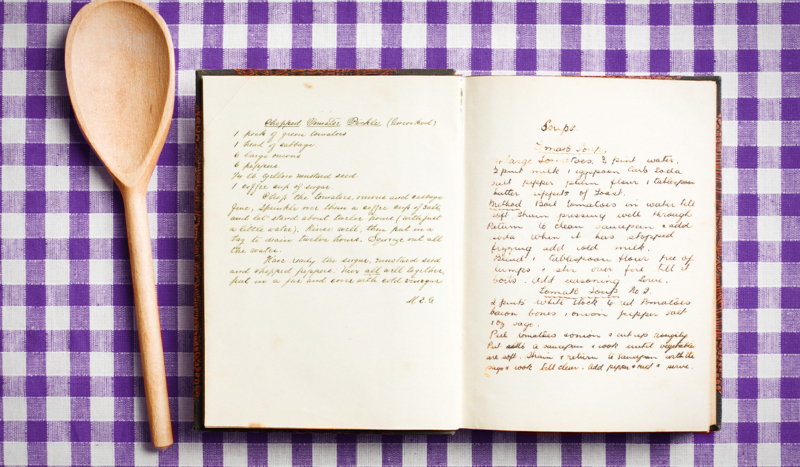 Chopped Tomatoe Pickle (Uncooked)
1 peck of green tomatoes
1 head of cabbage
6 large onions
6 peppers
¼ lb Yellow mustard seed
1 coffee cup of sugar.
Chop the tomatoes, onions and cabbage
fine, Sprinkle over them a coffee cup of salt,
and let stand about twelve hours (without
a little water). Rinse well, then put in a
bag to drain twelve hours. Squeeze out all
the water.
Have ready the sugar, mustard seed
and chopped peppers. Mix all well together,
put in a jar and cover with cold vinegar
M.C.G
Soups.
Tomato Soup.
4 large Tomatoes. ½ pint water.
½ pint milk 1 carb Soda
salt pepper flour 1 tablespoon
butter sippets of Toast.
Method Boil tomatoes in water till
soft Strain pressing well through
Return to clean saucepan & add
soda when it has stopped
frizzing add cold milk.
Blend 1 tablespoon flour free of
lumps & stir over fire till it
boils. Add seasoning Serve.
Tomato Soup No 2.
2 pints White Stock 6 red Tomatoes
bacon bones 1 onion pepper salt
1 oz sago.
Peel tomatoes & onion & cut up roughly
Put in a saucepan & cook until vegetables
are soft. Strain & return to saucepan with the
sago & cook till clear. Add pepper & salt & serve.